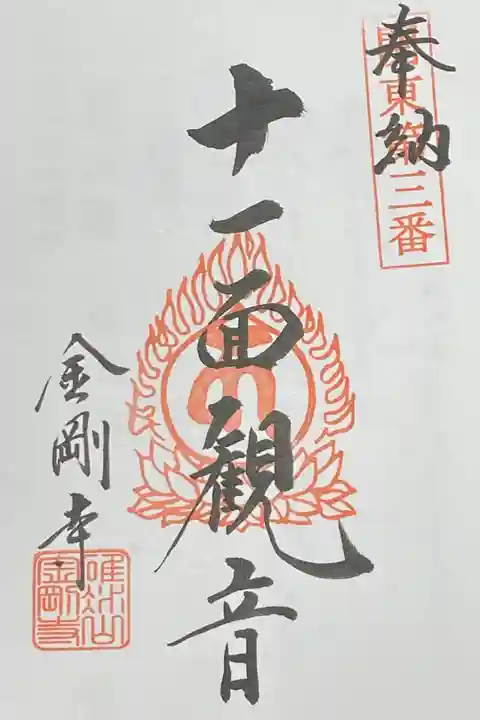 奉納
東第三番
十一面観音
金剛寺
金剛寺